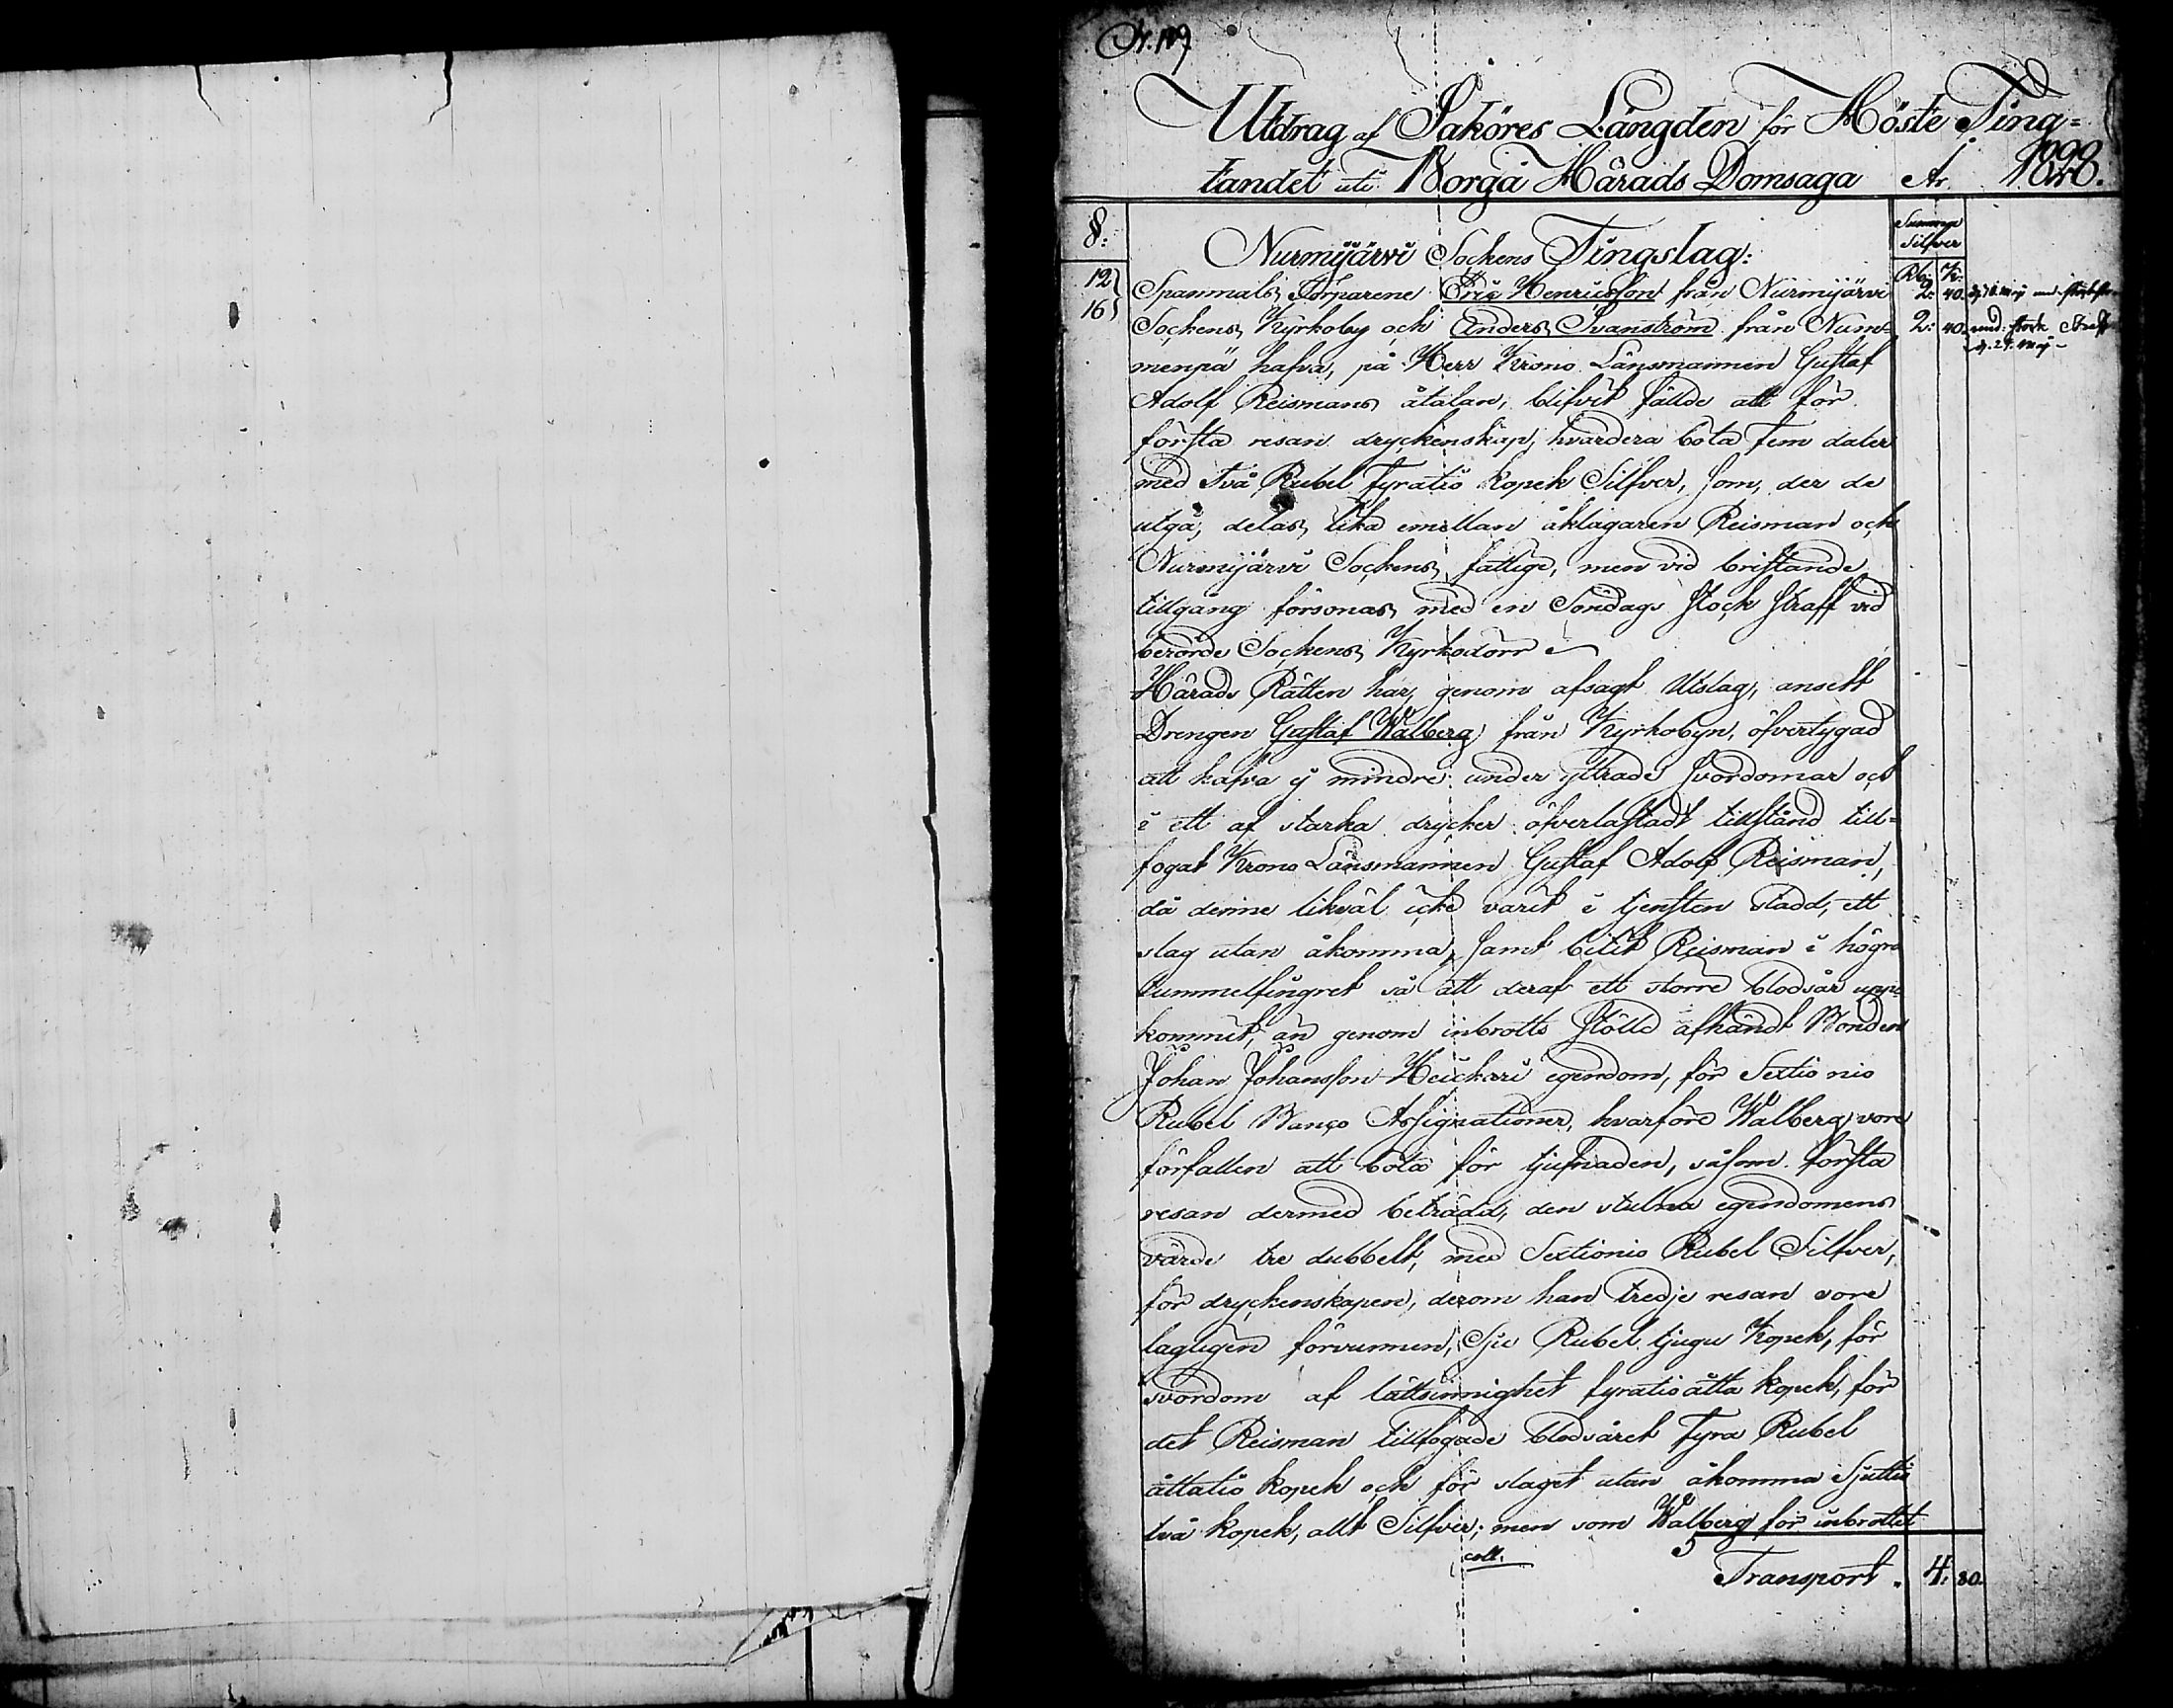 Utdrag af Saköres Längden för Höste Ting=
tandet uti Borgå Härads Domsaga År
8:
Nurmijärvi Sockens Tingslag:
Summa
Silfver
Rb: K:
12}
16}
Spanmals Torparene Eric Henricsson från Nurmijärvi 2: 40.
Sockens Kyrkoby och Anders Svanström från Num= 2: 40.
menpä hafva, på Herr Krono Länsmannen Gustaf
Adolf Reismans åtalan, blifvit fällde att för
första resan dryckenskap, hvardera böta fem daler
med två Rubel fyratio kopek Silfver, som, der de
utgå, delas lika emellan åklagaren Reisman och
Nurmijärvi Sockens fattige, men vid bristande
tillgång försonas med en Söndags stock straff vid
berörde Sockens Kyrkodörr
Härads Rätten har, genom afsagt Utslag, ansett
Drengen Gustaf Walberg från Kyrkobyn, öfvertygad
att hafva ej mindre under yttrade svordomar och
i ett af starka drycker öfverlastadt tillstånd till=
fogat Krono Länsmannen Gustaf Adolf Reisman,
då denne likväl icke varit i tjensten stadd, ett
slag utan åkomma, samt bitit Reisman i högra
tummelfingret så att deraf ett större blodsår upp=
kommit, än genom inbrotts stöld afhändt Bonden
Johan Johansson Heickari egendom, för Sextio nio
Rubel Banco Assignationer, hvarföre Walberg vore
förfallen att böta för tjufnaden, såsom första
resan dermed beträdd, den stulna egendomens
värde tre dubbelt, med Sextionio Rubel Silfver,
för dryckenskapen, derom han tredje resan vore
lagligen förvunnen, Sju Rubel tjugu Kopek, för
svordom af lättsinnighet fyratioåtta kopek, för
det Reisman tillfogade blodsåret Fyra Rubel
åttatio kopek och för slaget utan åkomma Sjuttio
två kopek, allt Silfver; men som Walberg för inbrottet
coll.
Transport . 4: 80.